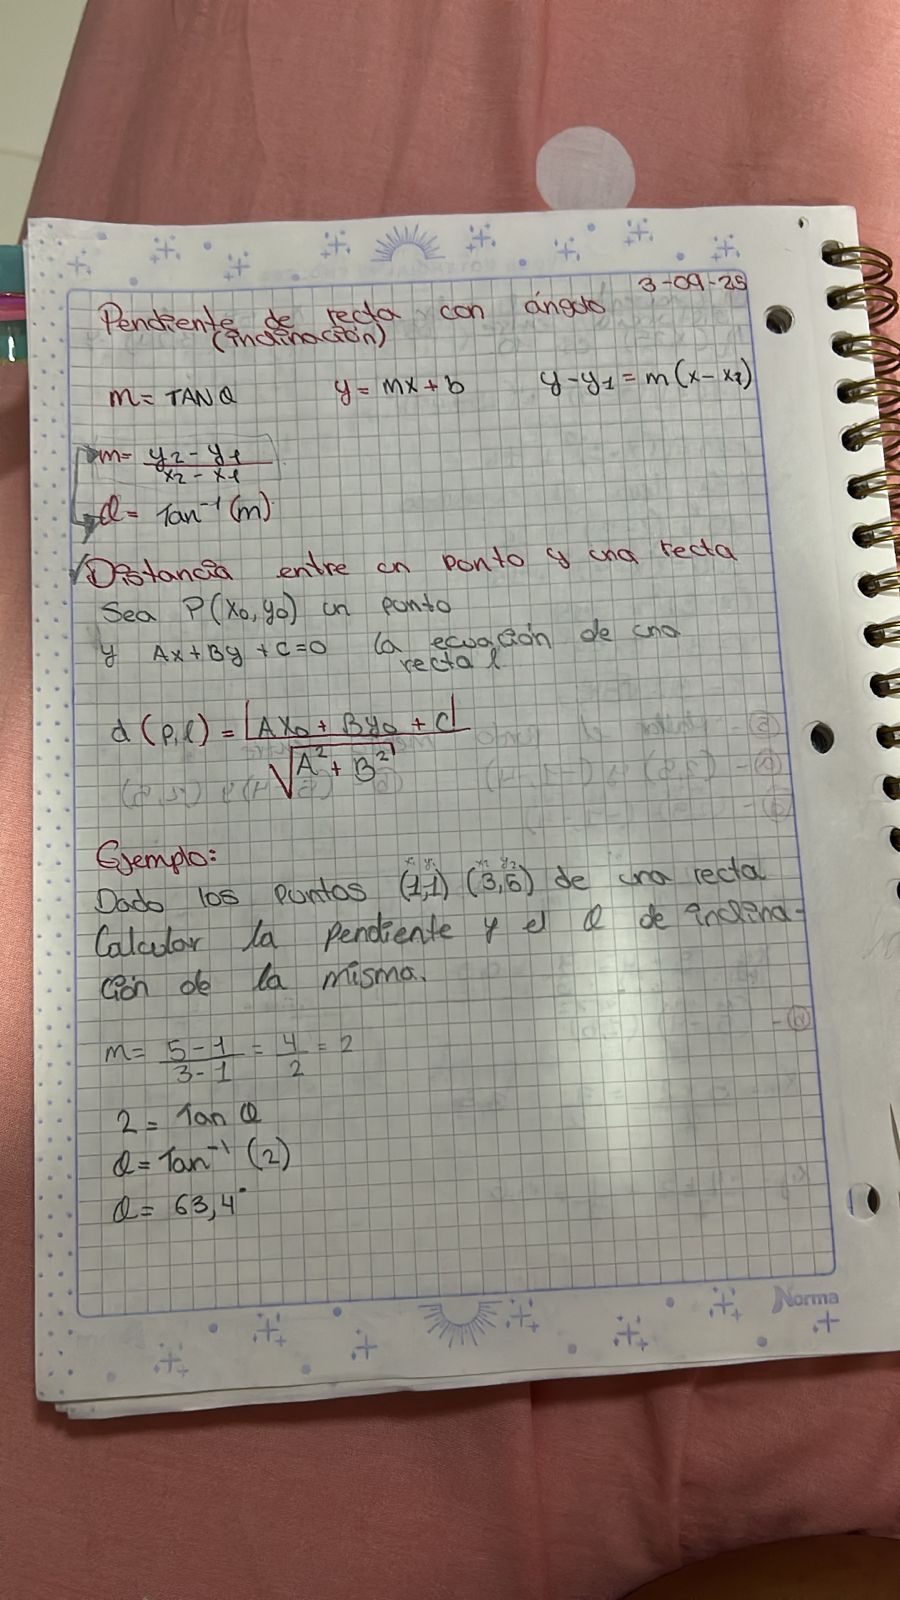 3-09-25
Pendiente de recta con ángulo
(inclinación)
m = TAN θ y = mx + b y - y1 = m(x - x1)
m = y2 - y1 / x2 - x1
θ = Tan⁻¹ (m)
Distancia entre un punto y una recta
Sea P(x0, y0) un punto
y Ax + By + C = 0 la ecuación de una
recta l
d (P, l) = |Ax0 + By0 + C| / √A² + B²
Ejemplo:
x1 y1 x2 y2
Dado los puntos (1,1) (3,5) de una recta
Calcular la pendiente y el θ de inclina-
ción de la misma.
m = 5 - 1 / 3 - 1 = 4 / 2 = 2
2 = Tan θ
θ = Tan⁻¹ (2)
θ = 63,4°
Norma